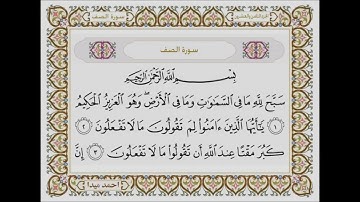 سورة الصف
الجزء الثامن والعشرون
سورة الصف
بِسْمِ اللَّهِ الرَّحْمَٰنِ الرَّحِيمِ
سَبَّحَ لِلَّهِ مَا فِي السَّمَٰوَٰتِ وَمَا فِي الْأَرْضِ ۖ وَهُوَ الْعَزِيزُ الْحَكِيمُ
١ يَٰٓأَيُّهَا الَّذِينَ ءَامَنُوا لِمَ تَقُولُونَ مَا لَا تَفْعَلُونَ ٢
كَبُرَ مَقْتًا عِندَ اللَّهِ أَن تَقُولُوا مَا لَا تَفْعَلُونَ ٣ إِنَّ
احمد ميدا